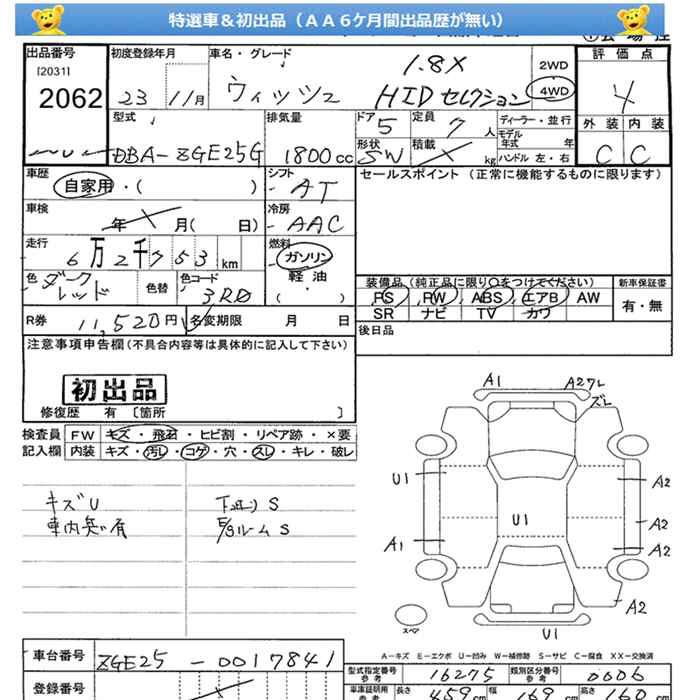 特選車＆初出品（ＡＡ６ケ月間出品歴が無い）
出品番号 初度登録年月 車名・グレード 評価点
[2031] 1.8X 2WD
2062 23 11月 ウィッシュ HIDセレクション 4WD 4
型式 排気量 ドア 定員 ディーラー・並行 外装 内装
5 7人 モデル年式 年
DBA-ZGE25G 1800cc 形状 SW 積載 kg ハンドル 左・右 C C
車歴 シフト セールスポイント（正常に機能するものに限ります）
自家用・( ) AT
車検 冷房
年 月( 日) AAC
走行 燃料
6万2千753 km ガソリン
色 ダークレッド 色替 色コード 3R0 軽油 装備品（純正品に限り○をつけてください） 新車保証書
( ・ ) PS PW ABS エアB AW 有・無
SR ナビ TV カワ
R券 11,520円 名変期限 月 日 後日品
注意事項申告欄（不具合内容等は具体的に記入して下さい）
初出品
修復歴 有〔箇所 〕
検査員 FW キズ・飛石・ヒビ割・リペア跡・×要
記入欄 内装 キズ・汚レ・コゲ・穴・スレ・キレ・破レ
キズU
S
ルームS
A1 A2
ズレ
U1 A2
U1 A2
A1 A2
A2
スペア
U1
A－キズ E－エクボ U－凹み W－補修跡 S－サビ C－腐食 XX－交換済
車台番号 ZGE25-0017841 型式指定番号 参考 16275 類別区分番号 参考 0006
登録番号 車庫証明用 参考 長さ 459cm 幅 169cm 高さ 160cm